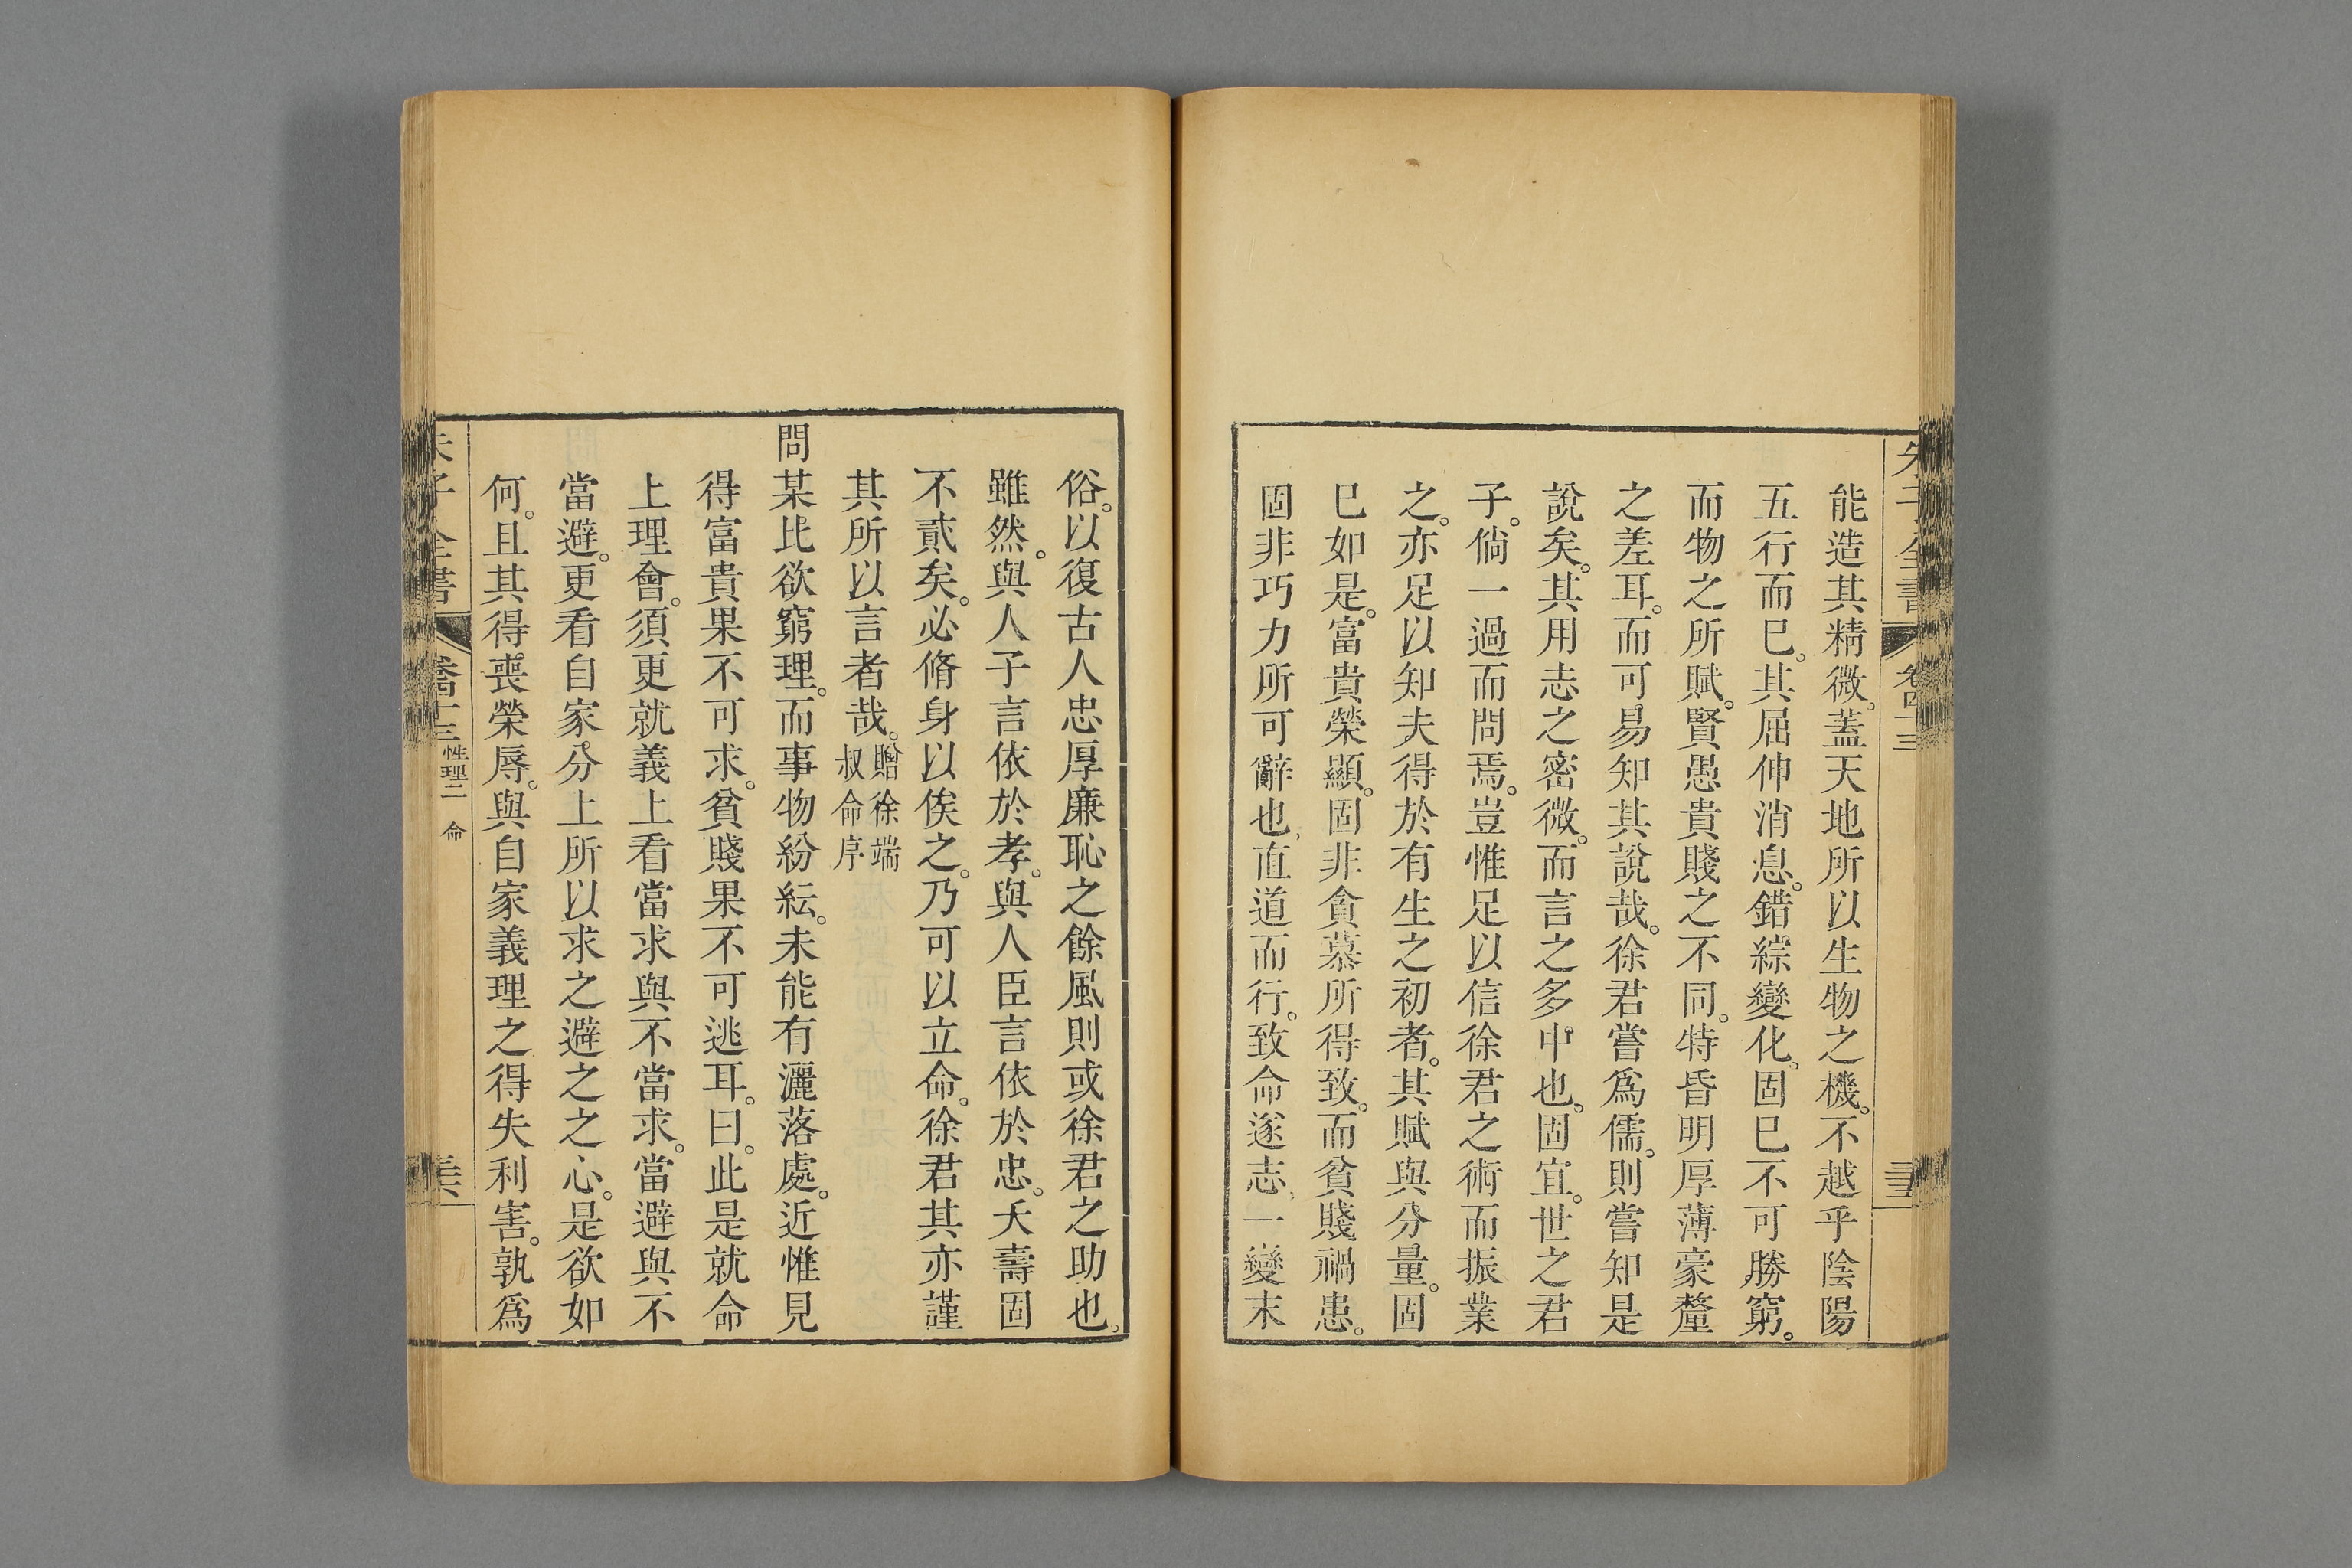 朱子全書 卷四十三
能造其精微。蓋天地所以生物之機。不越乎陰陽
五行而已。其屈伸消息。錯綜變化。固已不可勝窮。
而物之所賦。賢愚貴賤之不同。特昏明厚薄豪釐
之差耳。而可易知其說哉。徐君嘗爲儒。則嘗知是
說矣。其用志之密微。而言之多中也。固宜。世之君
子。倘一過而問焉。豈惟足以信徐君之術而振業
之。亦足以知夫得於有生之初者。其賦與分量。固
已如是。富貴榮顯。固非貪慕所得致。而貧賤禍患。
固非巧力所可辭也、直道而行。致命遂志、一變末
俗。以復古人忠厚廉恥之餘風則或徐君之助也。
雖然。與人子言依於孝。與人臣言依於忠。夭壽固
不貳矣。必脩身以俟之。乃可以立命。徐君其亦謹
其所以言者哉。贈徐端叔命序
問某比欲窮理。而事物紛紜。未能有灑落處。近惟見
得富貴果不可求。貧賤果不可逃耳。曰。此是就命
上理會。須更就義上看當求與不當求。當避與不
當避。更看自家分上所以求之避之之心。是欲如
何。且其得喪榮辱。與自家義理之得失利害。孰爲
朱子全書 卷四十三 性理二 命